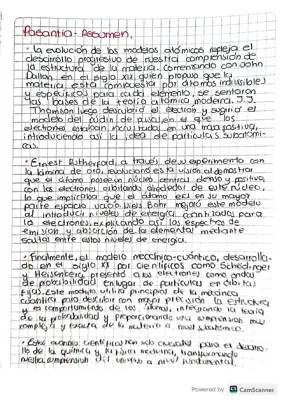 Pasantía - Resumen.
• La evolución de los modelos atómicos refleja el
desarrollo progresivo de nuestra comprensión de
la estructura de la materia. Comenzando con John
Dalton en el siglo XIX, quien propuso que la
materia está compuesta por átomos indivisibles
y específicos para cada elemento, se sentaron
las bases de la teoría atómica moderna. J.J.
Thomson luego descubrió el electrón y sugirió el
modelo del pudín de pasas, en el que los
electrones estaban incrustados en una masa positiva,
introduciendo así la idea de partículas subatómi-
cas.
• Ernest Rutherford, a través de su experimento con
la lámina de oro, revolucionó esta visión al demostrar
que el átomo posee un núcleo central denso y positivo,
con los electrones orbitando alrededor de este núcleo,
lo que implicaba que el átomo era en su mayor
parte espacio vacío. Niels Bohr mejoró este modelo
al introducir niveles de energía cuantizados para
los electrones, explicando así los espectros de
emisión y absorción de los elementos mediante
saltos entre estos niveles de energía.
• Finalmente, el modelo mecánico-cuántico, desarrolla-
do en el siglo XX por científicos como Schrödinger
y Heisenberg, presentó a los electrones como ondas
de probabilidad en lugar de partículas en órbitas
fijas. Este modelo utiliza principios de la mecánica
cuántica para describir con mayor precisión la estructura
y el comportamiento de los átomos, integrando la teoría
de la probabilidad y proporcionando una comprensión más
compleja y exacta de la materia a nivel subatómico.
• Estos avances científicos no son cruciales para el desarro-
llo de la química y la física moderna, transformando
nuestra comprensión del universo a nivel fundamental.
Powered by CamScanner